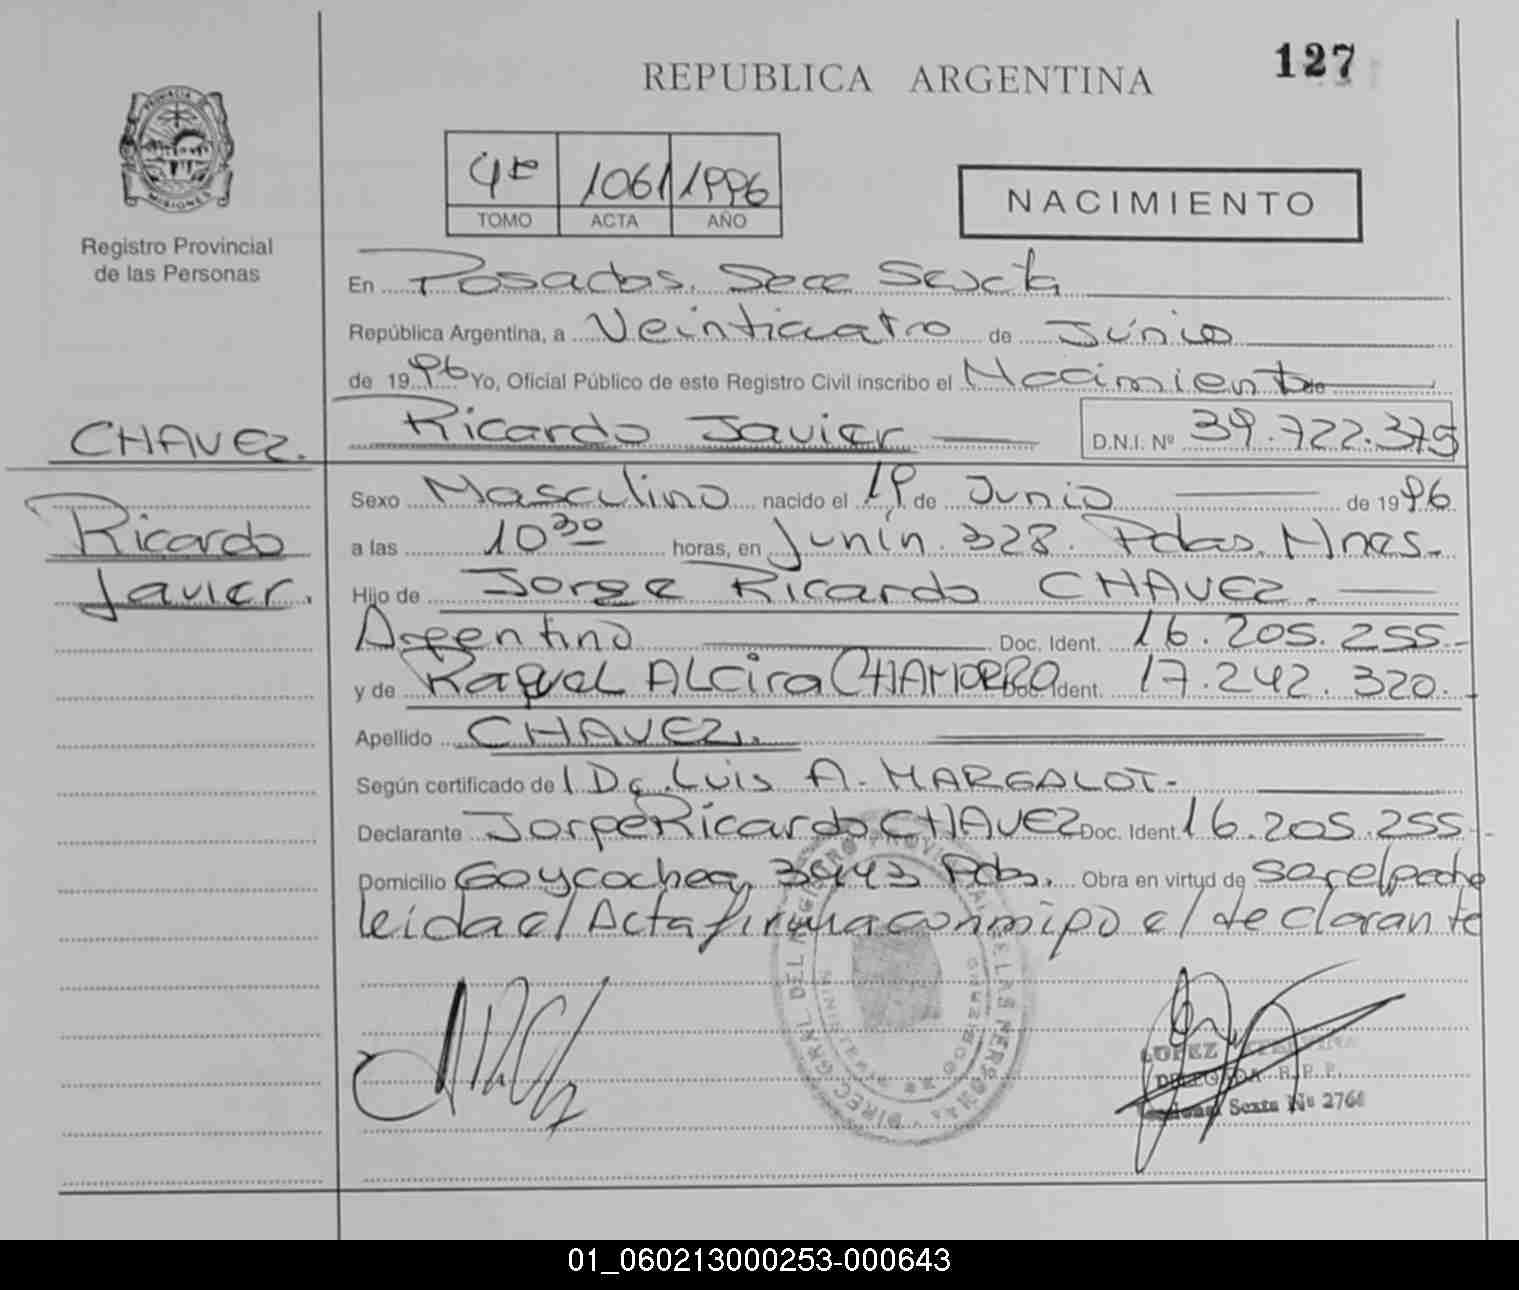 127
REPUBLICA ARGENTINA
PROVINCIA DE
MISIONES
Registro Provincial
de las Personas
4to 1061 1996
TOMO ACTA AÑO
NACIMIENTO
En Posadas. Secc Sexta
República Argentina, a Veinticuatro de Junio
de 1996 Yo, Oficial Público de este Registro Civil inscribo el Nacimiento de
CHAVEZ.
Ricardo Javier D.N.I. Nº 39.722.375
Ricardo
Javier.
Sexo Masculino nacido el 19 de Junio de 1996
a las 10 30 horas, en Junín. 328. Pdas. Mnes.-
Hijo de Jorge Ricardo CHAVEZ.
Argentino Doc. Ident. 16.205.255.-
y de Raquel ALcira CHAMORRO Doc. Ident. 17.242.320.-
Apellido CHAVEZ.
Según certificado de Luis A. MARGALOT-
Declarante Jorge Ricardo CHAVEZ Doc. Ident. 16.205.255.-
Domicilio Goycochea, 3943 Pdas. Obra en virtud de
leida el Acta firma conmigo el declarante
LOPEZ
DELEGADA R. P. P.
Sexta Nº 2768
01_060213000253-000643